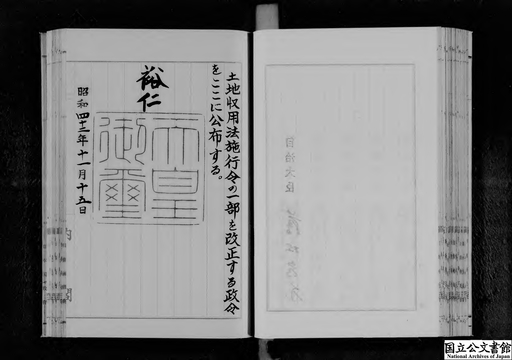 土地収用法施行令の一部を改正する政令
をここに公布する。
裕仁
天皇
御璽
昭和四十三年十一月十五日
内
閣
自治大臣
国立公文書館
National Archives of Japan